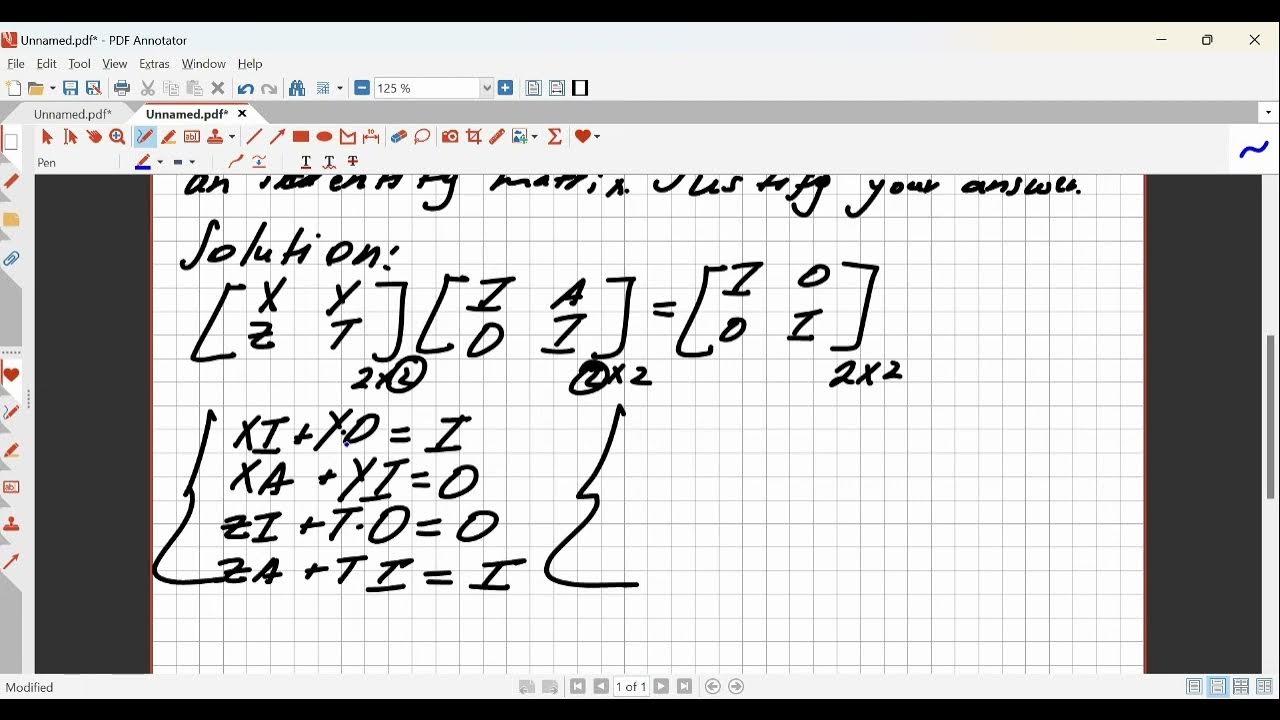 Unnamed.pdf* - PDF Annotator
File Edit Tool View Extras Window Help
125 %
Unnamed.pdf* Unnamed.pdf*
Pen
an identity matrix. Justify your answer.
Solution:
[X Y] [I A] = [I O]
[Z T] [O I] [O I]
2x2 2x2 2x2
XI + Y·O = I
XA + YI = O
ZI + T·O = O
ZA + TI = I
Modified 1 of 1